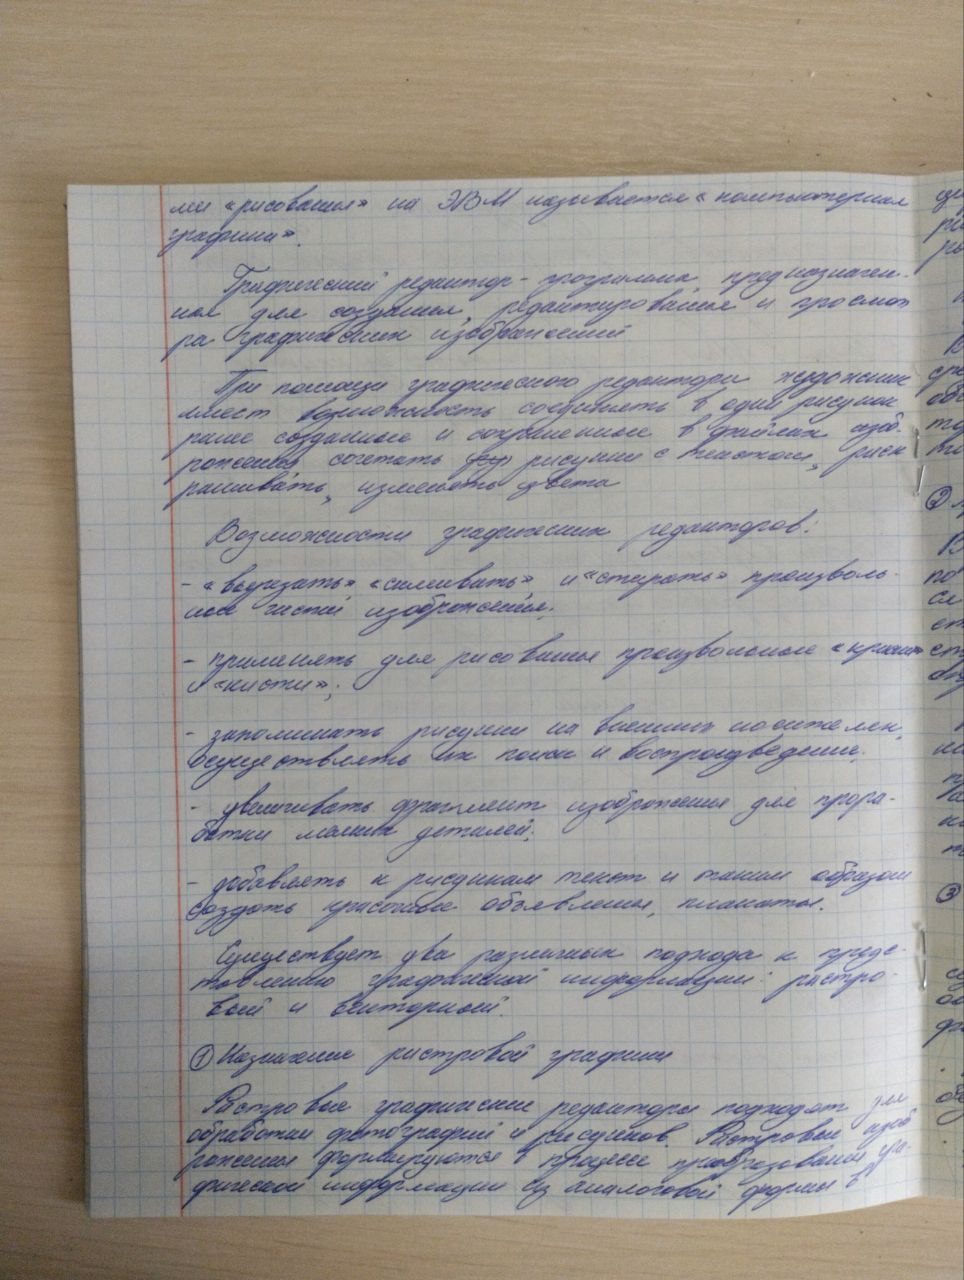 ми «рисования» на ЭВМ называется «компьютерная
графика».
Графический редактор - программа, предназначен-
ная для создания, редактирования и просмот
ра графических изображений
При помощи графического редактора художник
имеет возможность соединять в один рисунок
ранее созданные и сохраненные в файлах изоб
ражения, сочетать рисунки с текстом, раск
рашивать, изменять цвета
Возможности графических редакторов:
- «вырезать» «склеивать» и «стирать» произволь-
ные части изображения;
- применять для рисования произвольные «краски»
и «кисти»;
- запоминать рисунки на внешних носителях,
осуществлять их поиск и воспроизведение;
- увеличивать фрагмент изображения для прора-
ботки мелких деталей;
- добавлять к рисункам текст и таким образом
создать красочные объявления, плакаты.
Существует два различных подхода к предс-
товлению графической информации: растро-
вый и векторный.
① Назначение растровой графики
Растровые графические редакторы подходят для
обработки фотографий и рисунков. Растровые изоб
ражения формируются в процессе преобразования гра-
фической информации из аналоговой формы в
②
В
по
③